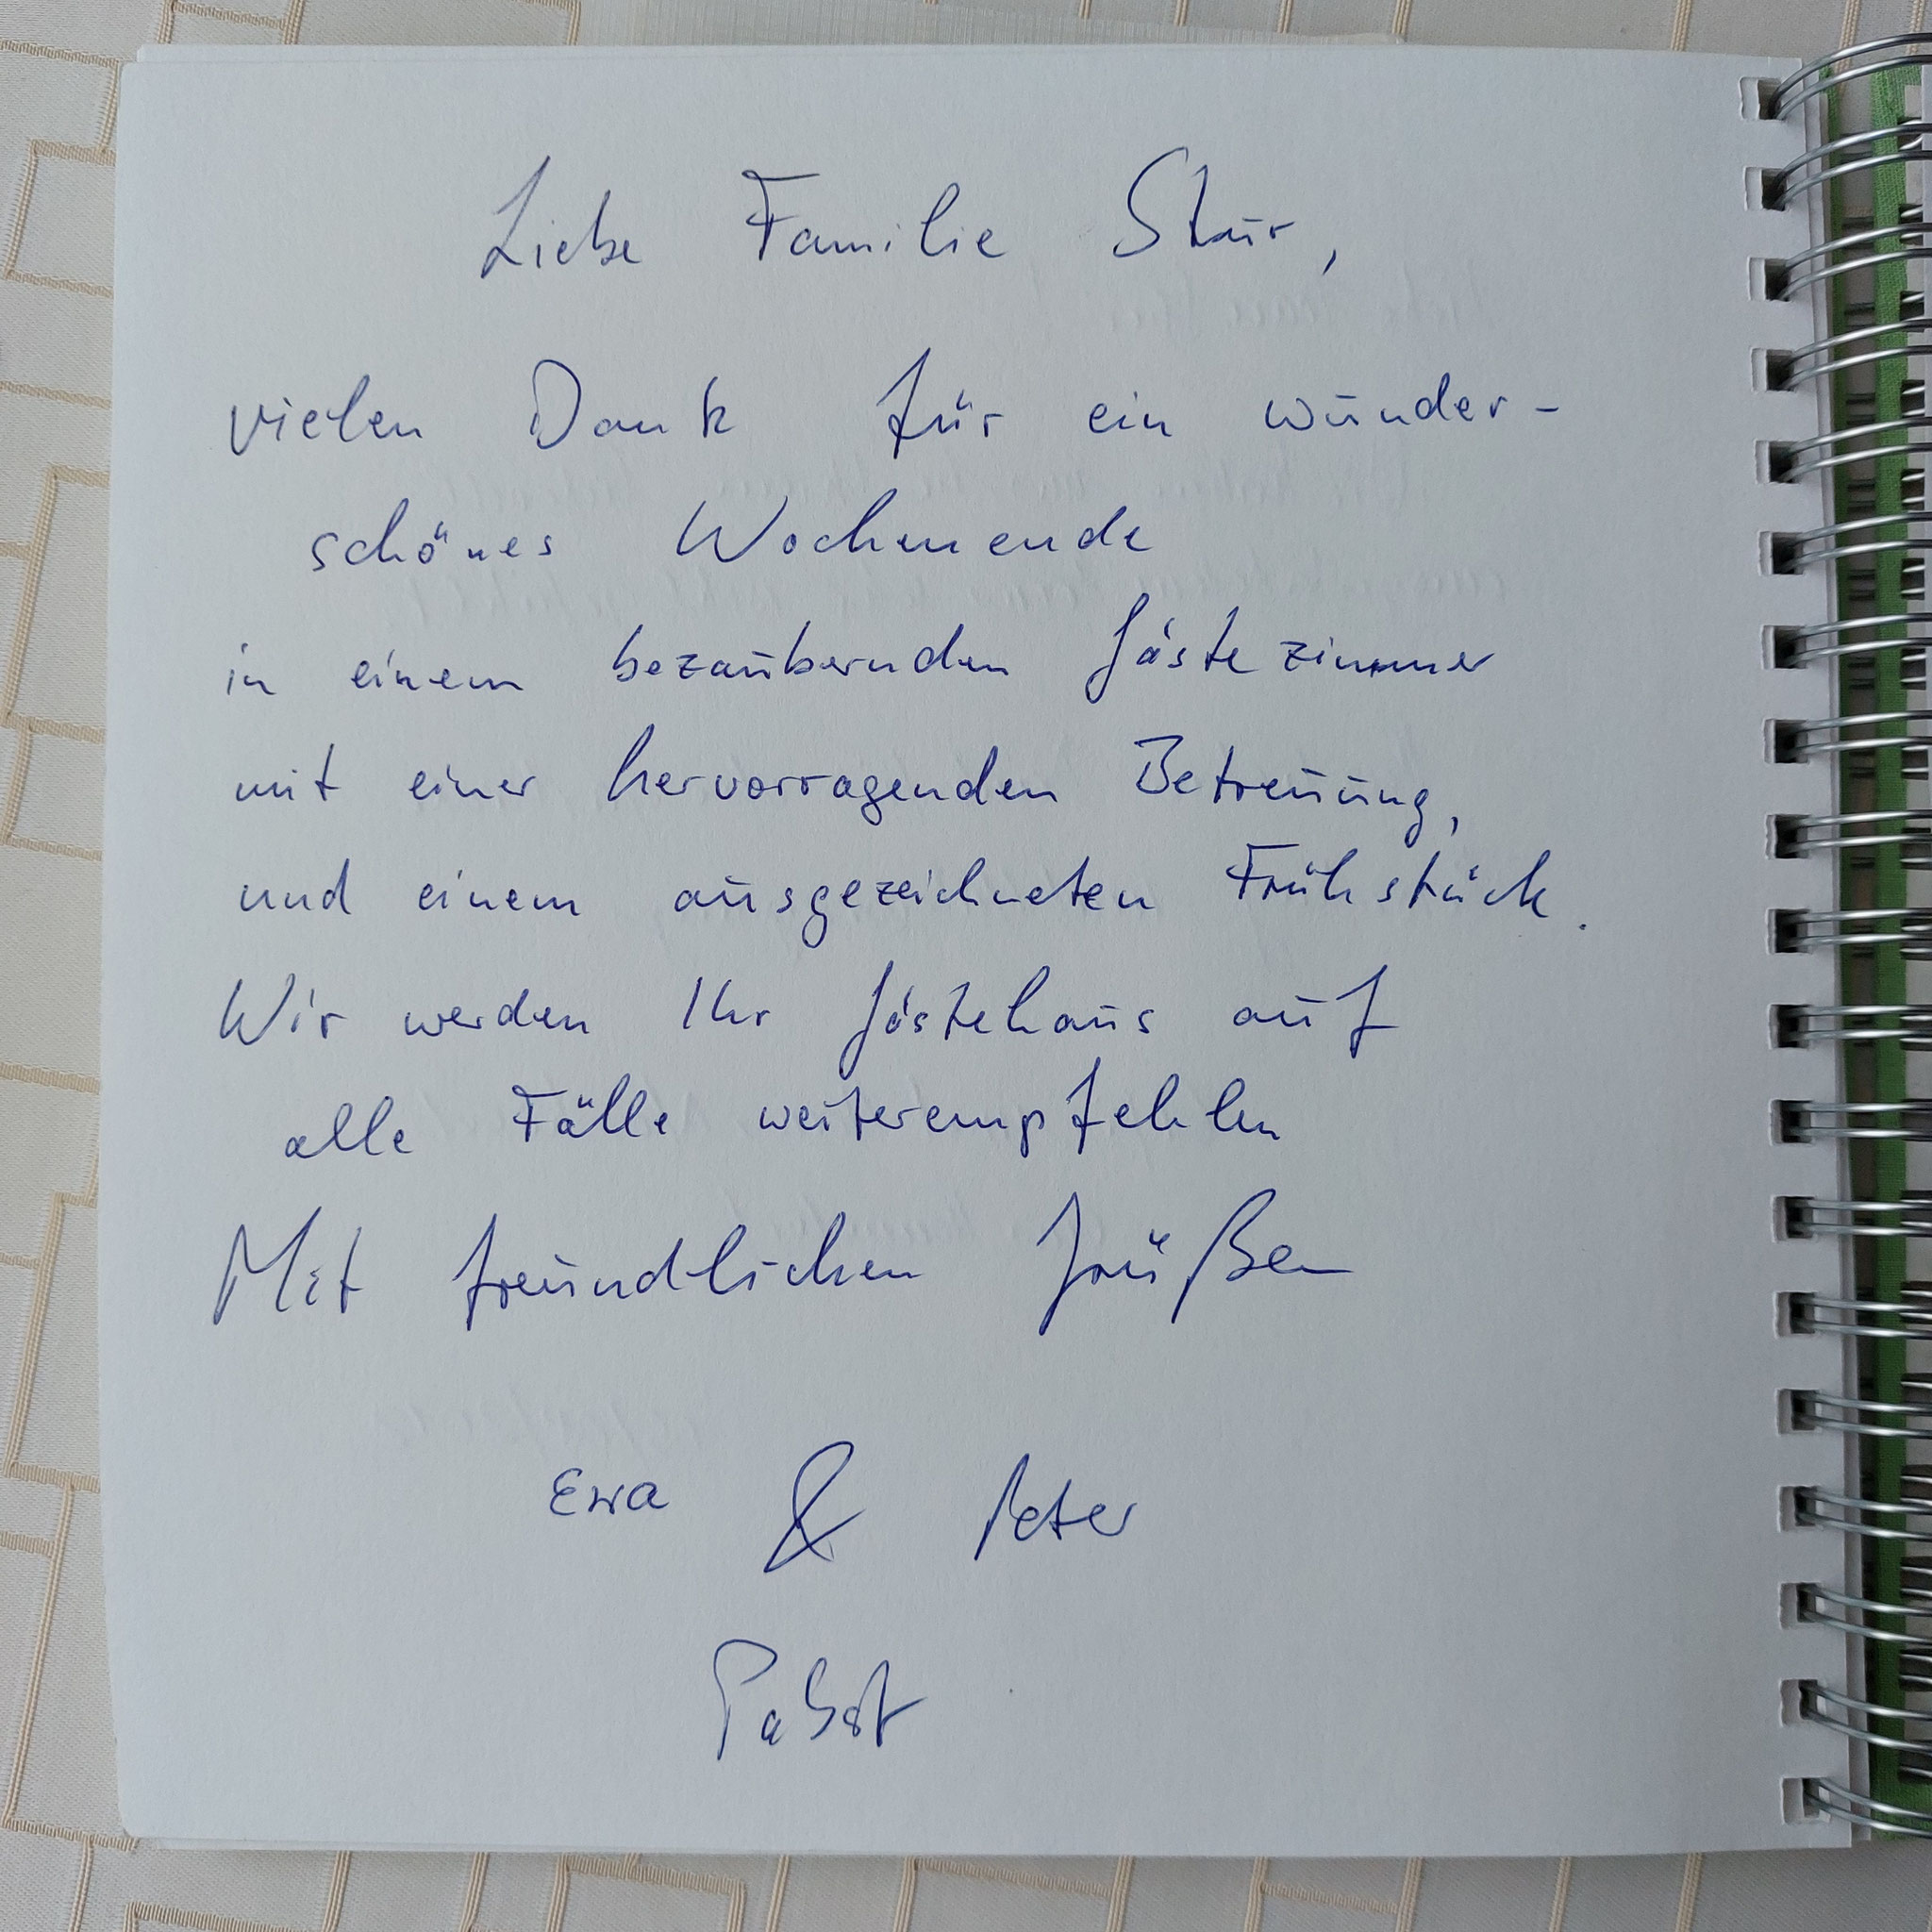 Liebe Familie Stur,
vielen Dank für ein wunder-
schönes Wochenende
in einem bezaubernden Gästezimmer
mit einer hervorragenden Betreuung,
und einem ausgezeichneten Frühstück.
Wir werden Ihr Gästehaus auf
alle Fälle weiterempfehlen
Mit freundlichen Grüßen
Ewa & Peter
Pabst